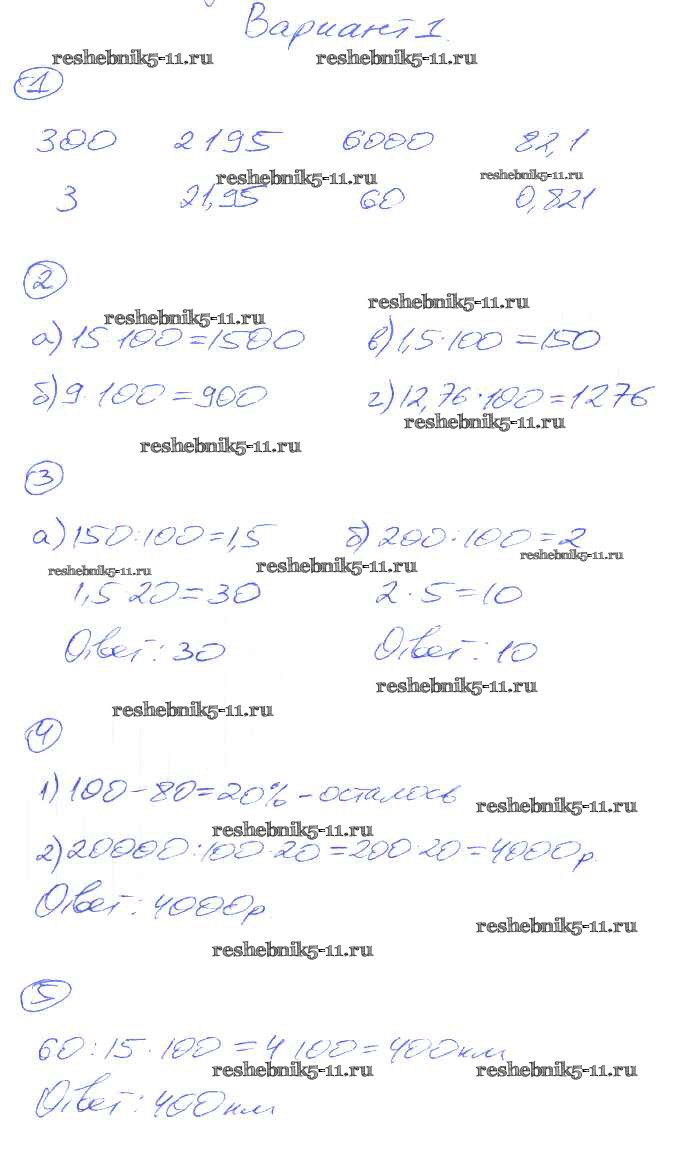 Вариант 1.
reshebnik5-11.ru reshebnik5-11.ru
1
300 2195 6000 82,1
reshebnik5-11.ru reshebnik5-11.ru
3 21,95 60 0,821
2
reshebnik5-11.ru
reshebnik5-11.ru
а) 15 100 = 1500 в) 1,5 · 100 = 150
б) 9 · 100 = 900 г) 12,76 · 100 = 1276
reshebnik5-11.ru
reshebnik5-11.ru
3
а) 150 : 100 = 1,5 б) 200 : 100 = 2
reshebnik5-11.ru
reshebnik5-11.ru reshebnik5-11.ru
1,5 20 = 30 2 · 5 = 10
Ответ: 30 Ответ: 10
reshebnik5-11.ru
reshebnik5-11.ru
4
1) 100 - 80 = 20% - осталось
reshebnik5-11.ru
reshebnik5-11.ru
2) 20000 : 100 · 20 = 200 · 20 = 4000 р.
Ответ: 4000 р.
reshebnik5-11.ru
reshebnik5-11.ru
5
60 : 15 · 100 = 4 100 = 400 км
reshebnik5-11.ru reshebnik5-11.ru
Ответ: 400 км